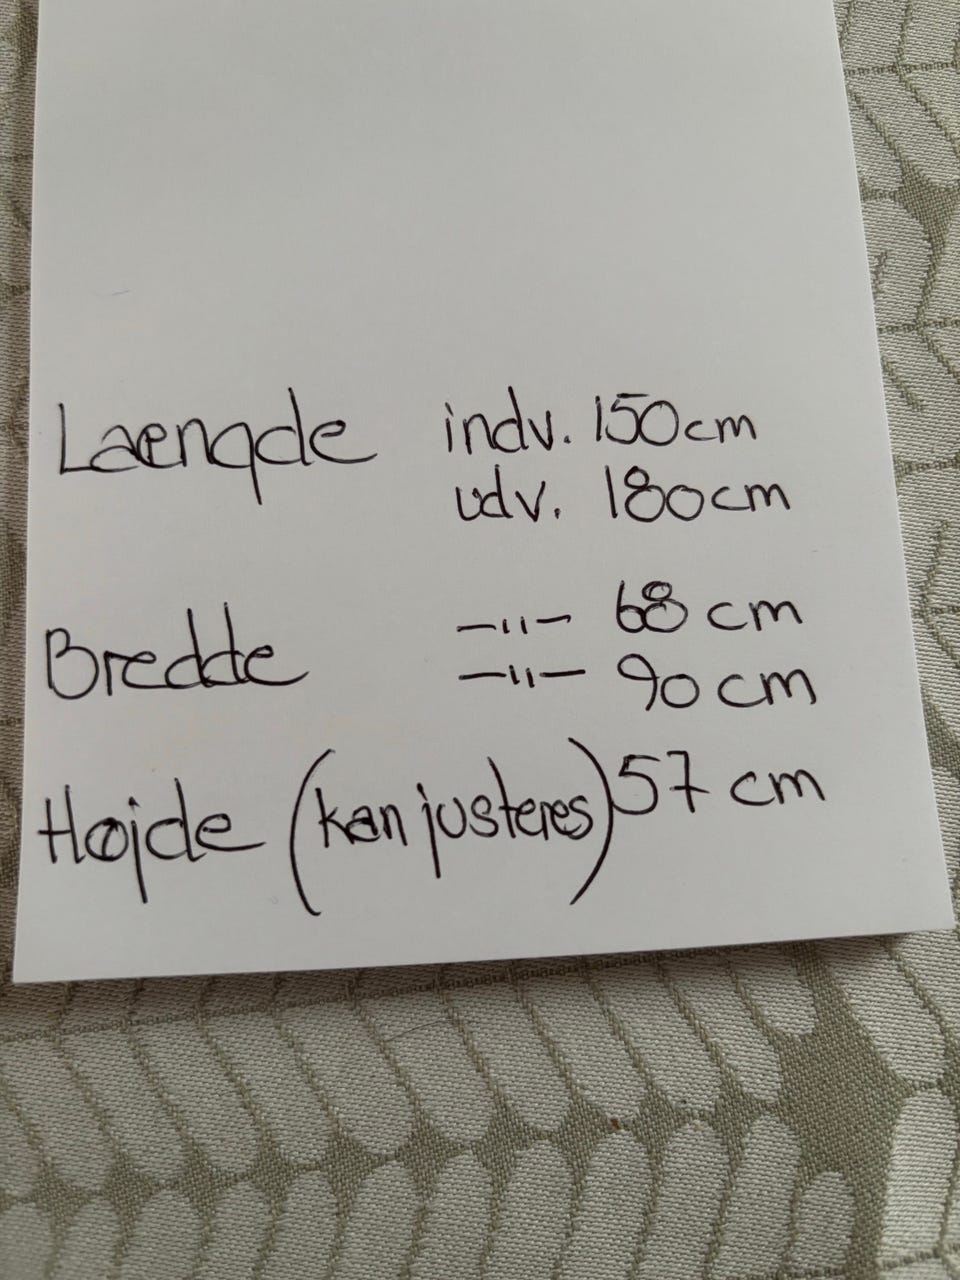 Laengde indv. 150cm
udv. 180cm
Bredde —"— 68 cm
—"— 90 cm
Højde (kan justeres) 57 cm